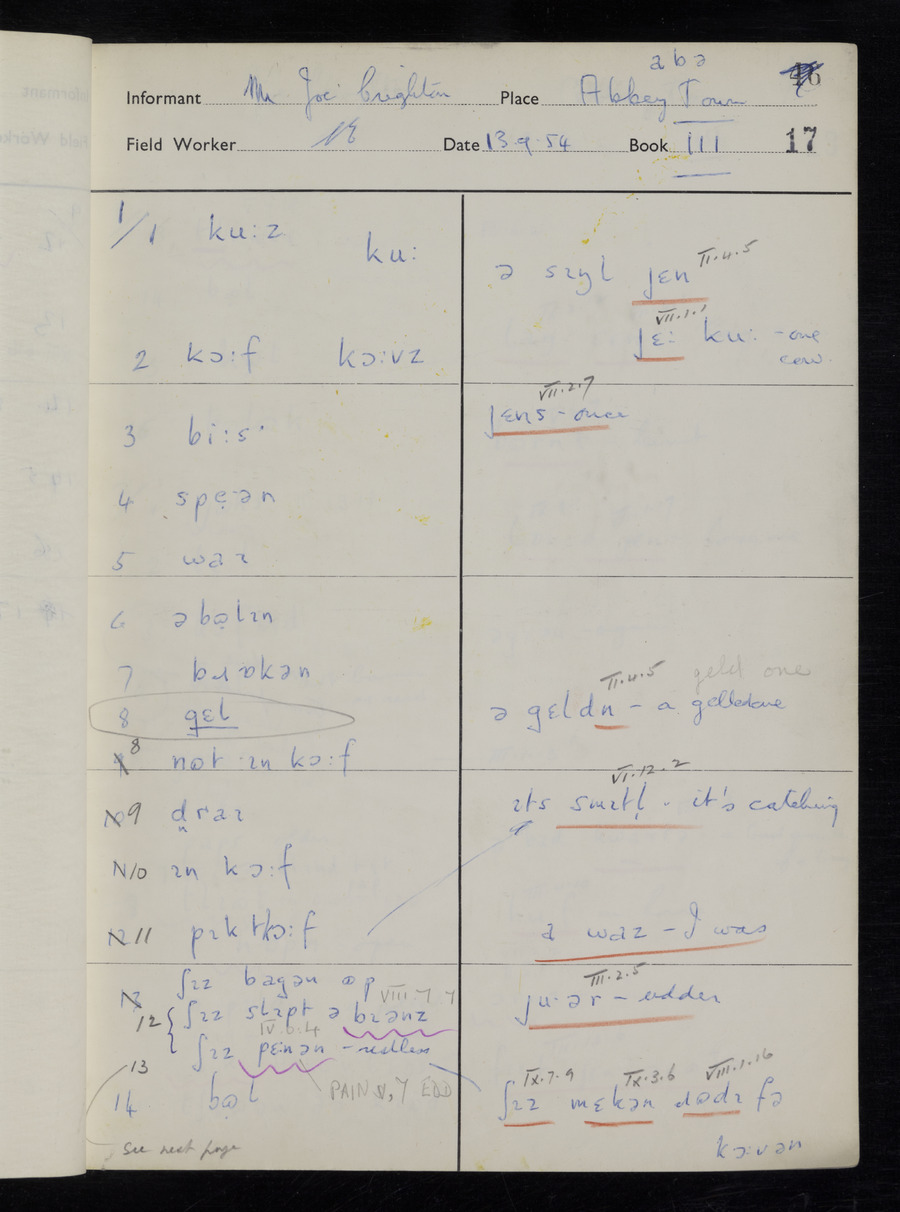 a b ə
Informant Mr Joe Brighton Place Abbey Town
Field Worker Date 13.9.54 Book III 17
1/1 ku:z
ku:
2 kɔ:f kɔ:vz
3 bi:s
4 spẹən
5 waɪ
6 əbọlɪn
7 bɹɒkən
8 gɛl
8 nɒt ɪn kɔ:f
9 d̪ɾaɪ
10 ɪn kɔ:f
11 pɪk tkɔ:f
ʃɪz bagən ɒp
12 ʃɪz slɪpt ə bɪənz VIII.7.7
IV.6.4
ʃɪz pɛɪnən – restless
13
14 bọl PAIN v, 7 EDD
See next page
ə sɪɣl jɛn II.4.5
VII.1.1
jɛ: ku: – one
cow.
VII.2.7
jɛns – once
II.4.5 geld one
ə gɛldn – a
VI.12.2
ɪts smɪtl̩ . it's catching
a waz – I was
III.2.5
ju·ər – udder
IX.7.9 IX.3.6 VIII.1.16
ʃɪz mɛkən fə
kɔ:vən